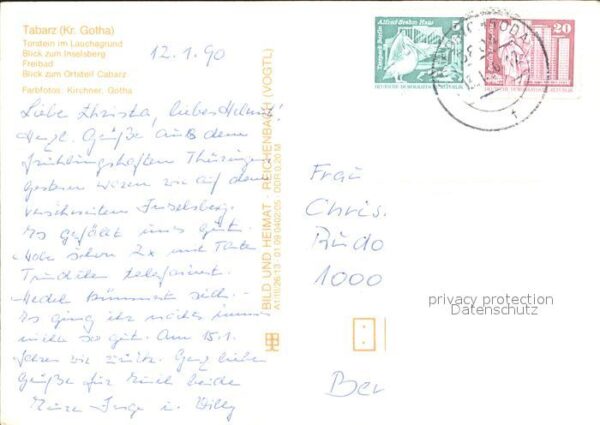 Tabarz (Kr. Gotha)
Torstein im Lauchagrund
Blick zum Inselsberg
Freibad
Blick zum Ortsteil Cabarz
Farbfotos: Kirchner, Gotha
12.1.90
Liebe Christa, lieber Helmut!
Herzl. Grüße aus dem
frühlingshaften Thüringen
Gestern waren wir auf dem
verschneiten Inselsberg.
Es gefällt uns gut.
Habe schon 2x mit Tante
Trudchen telefoniert.
Hedel kümmert sich.
Es ging ihr nachts immer
nicht so gut. Am 15.1.
fahren wir zurück. Ganz liebe
Grüße für Euch beide
Eure Inge u. Willy
BILD UND HEIMAT · REICHENBACH (VOGTL)
A1/III/26/13 · 01 09 0402/05 DDR 0,20 M
Alfred-Brehm-Haus
Tierpark Berlin
5
DEUTSCHE DEMOKRATISCHE REPUBLIK
20
REPUBLIK
Frau
Chris.
Rudo
1000
Ber
privacy protection
Datenschutz